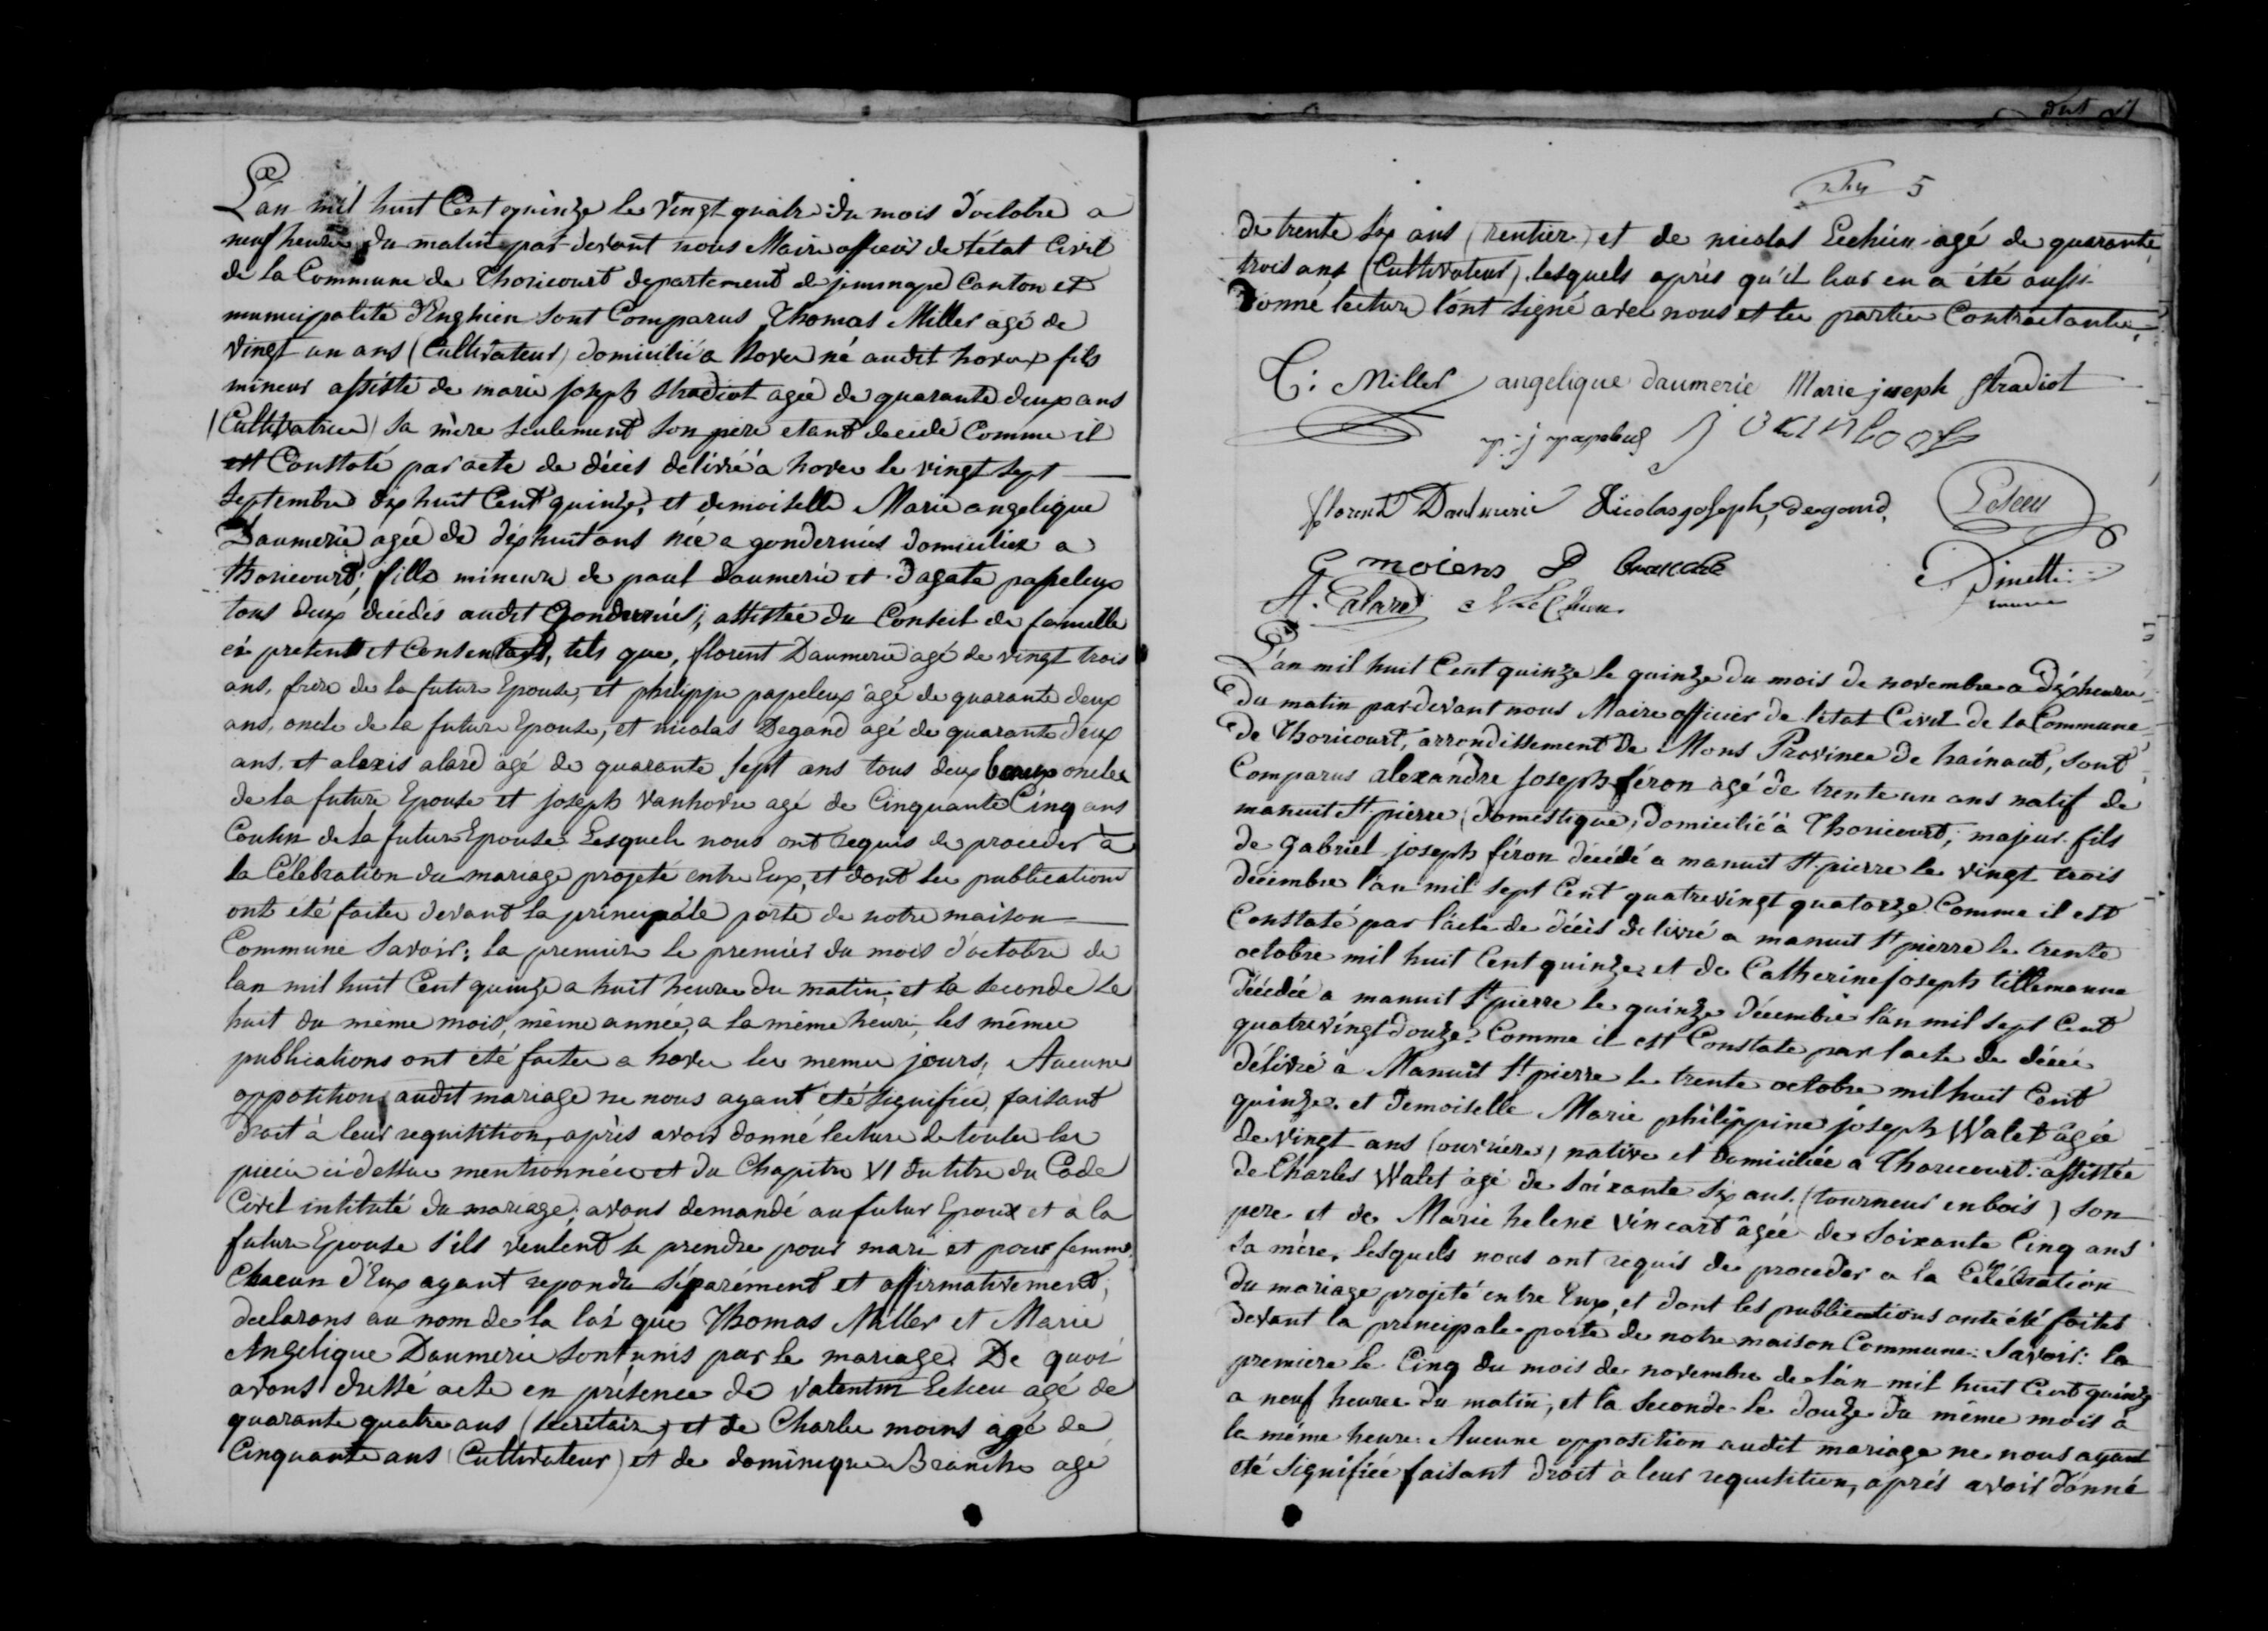 L'an mil huit Cent quinze le vingt quatre du mois d'octobre a
neuf heures du matin par devant nous Maire officier de l'état Civil
de la Commune de Thoricourt departement de jemmape Canton et
municipalité d'Enghien sont Comparus Thomas Miller agé de
vingt un ans (Cultivateur) domicilié a hove né audit hove fils
mineur assisté de marie joseph stradiot agée de quarante deux ans
(Cultivatrice) sa mère seulement son père etant decedé Comme il
est Constaté par acte de décès délivré a hove le vingt sept
septembre dix huit Cent quinze, et demoiselle Marie angelique
Daumerie agée de dix huit ans née a gondernies domiciliée a
thoricourt, fille mineure de paul daumerie et d'agate papeleux
tous deux décédés audit Gondernies, assistée du Conseil de famille
ci présent et Consentant, tels que, florent Daumerie agé de vingt trois
ans, frère de la future Epouse, et philippe papeleux agé de quarante deux
ans, oncle de la future Epouse, et nicolas Degand agé de quarante deux
ans, et alexis alard agé de quarante sept ans tous deux beaux oncles
de la future Epouse et joseph vanhove agé de Cinquante Cinq ans
Cousin de la future Epouse. Lesquels nous ont requis de proceder à
la Célébration du mariage projeté entre Eux, et dont les publications
ont été faites devant la principale porte de notre maison
Commune savoir; la premiere le premier du mois d'octobre de
lan mil huit Cent quinze a huit heures du matin, et la seconde le
huit du même mois, même année, a la même heure, les mêmes
publications ont été faites a hove les memes jours, Aucune
opposition audit mariage ne nous ayant été signifiée, faisant
droit à leur requisition, après avoir donné lecture de toutes les
pieces ci dessus mentionnées et du Chapitre VI du titre du Code
Civil intitulé du mariage, avons demandé au futur Epoux et à la
future Epouse s'ils veulent se prendre pour mari et pour femme,
Chacun d'Eux ayant repondu séparément et affirmativement,
declarons au nom de la loi que Thomas Miller et Marie
Angelique Daumerie sont unis par le mariage. De quoi
avons dressé acte en présence de valentin Letieu agé de
quarante quatre ans (secretaire) et de Charles moins agé de
Cinquante ans (Cultivateur) et de dominique Branche agé
5
de trente six ans (rentier) et de nicolas Lechien agé de quarante
trois ans (Cultivateur). lesquels après qu'il leur en a été aussi
donné lecture l'ont signé avec nous et les parties Contractantes.
T: Miller angelique daumerie Marie joseph stradiot
p: j papeleux
florent Daumerie Nicolas joseph, degand, Letieu
C moiens D branche Dinette
A. Calard N Lechien maire
L'an mil huit Cent quinze le quinze du mois de novembre a dix heures
du matin par devant nous Maire officier de l'état Civil de la Commune
de Thoricourt, arrondissement de Mons Province de hainaut, sont
Comparus alexandre joseph féron agé de trente un ans natif de
manuit St pierre (domestique) domicilié à Thoricourt, majeur fils
de gabriel joseph féron décédé a manuit St pierre le vingt trois
décembre l'an mil sept Cent quatre vingt quatorze Comme il est
Constaté par l'acte de décès délivré a manuit St pierre le trente
octobre mil huit Cent quinze, et de Catherine joseph tillemanne
décédée a manuit St pierre le quinze décembre l'an mil sept Cent
quatre vingt douze. Comme il est Constaté par l'acte de décès
délivré à Manuit St pierre le trente octobre mil huit Cent
quinze. et demoiselle Marie philippine joseph Walet âgée
de vingt ans (ouvrière) native et domiciliée a Thoricourt: assistée
de Charles Walet agé de soixante six ans (tourneur en bois) son
pere et de Marie helene vincart âgée de soixante Cinq ans
sa mère. Lesquels nous ont requis de proceder a la Célébration
du mariage projeté entre Eux, et dont les publications ont été faites
devant la principale porte de notre maison Commune: savoir: la
premiere le Cinq du mois de novembre de l'an mil huit Cent quinze
a neuf heures du matin, et la seconde le douze du même mois a
la même heure. Aucune opposition audit mariage ne nous ayant
été signifiée faisant droit à leur requisition, aprés avoir donné